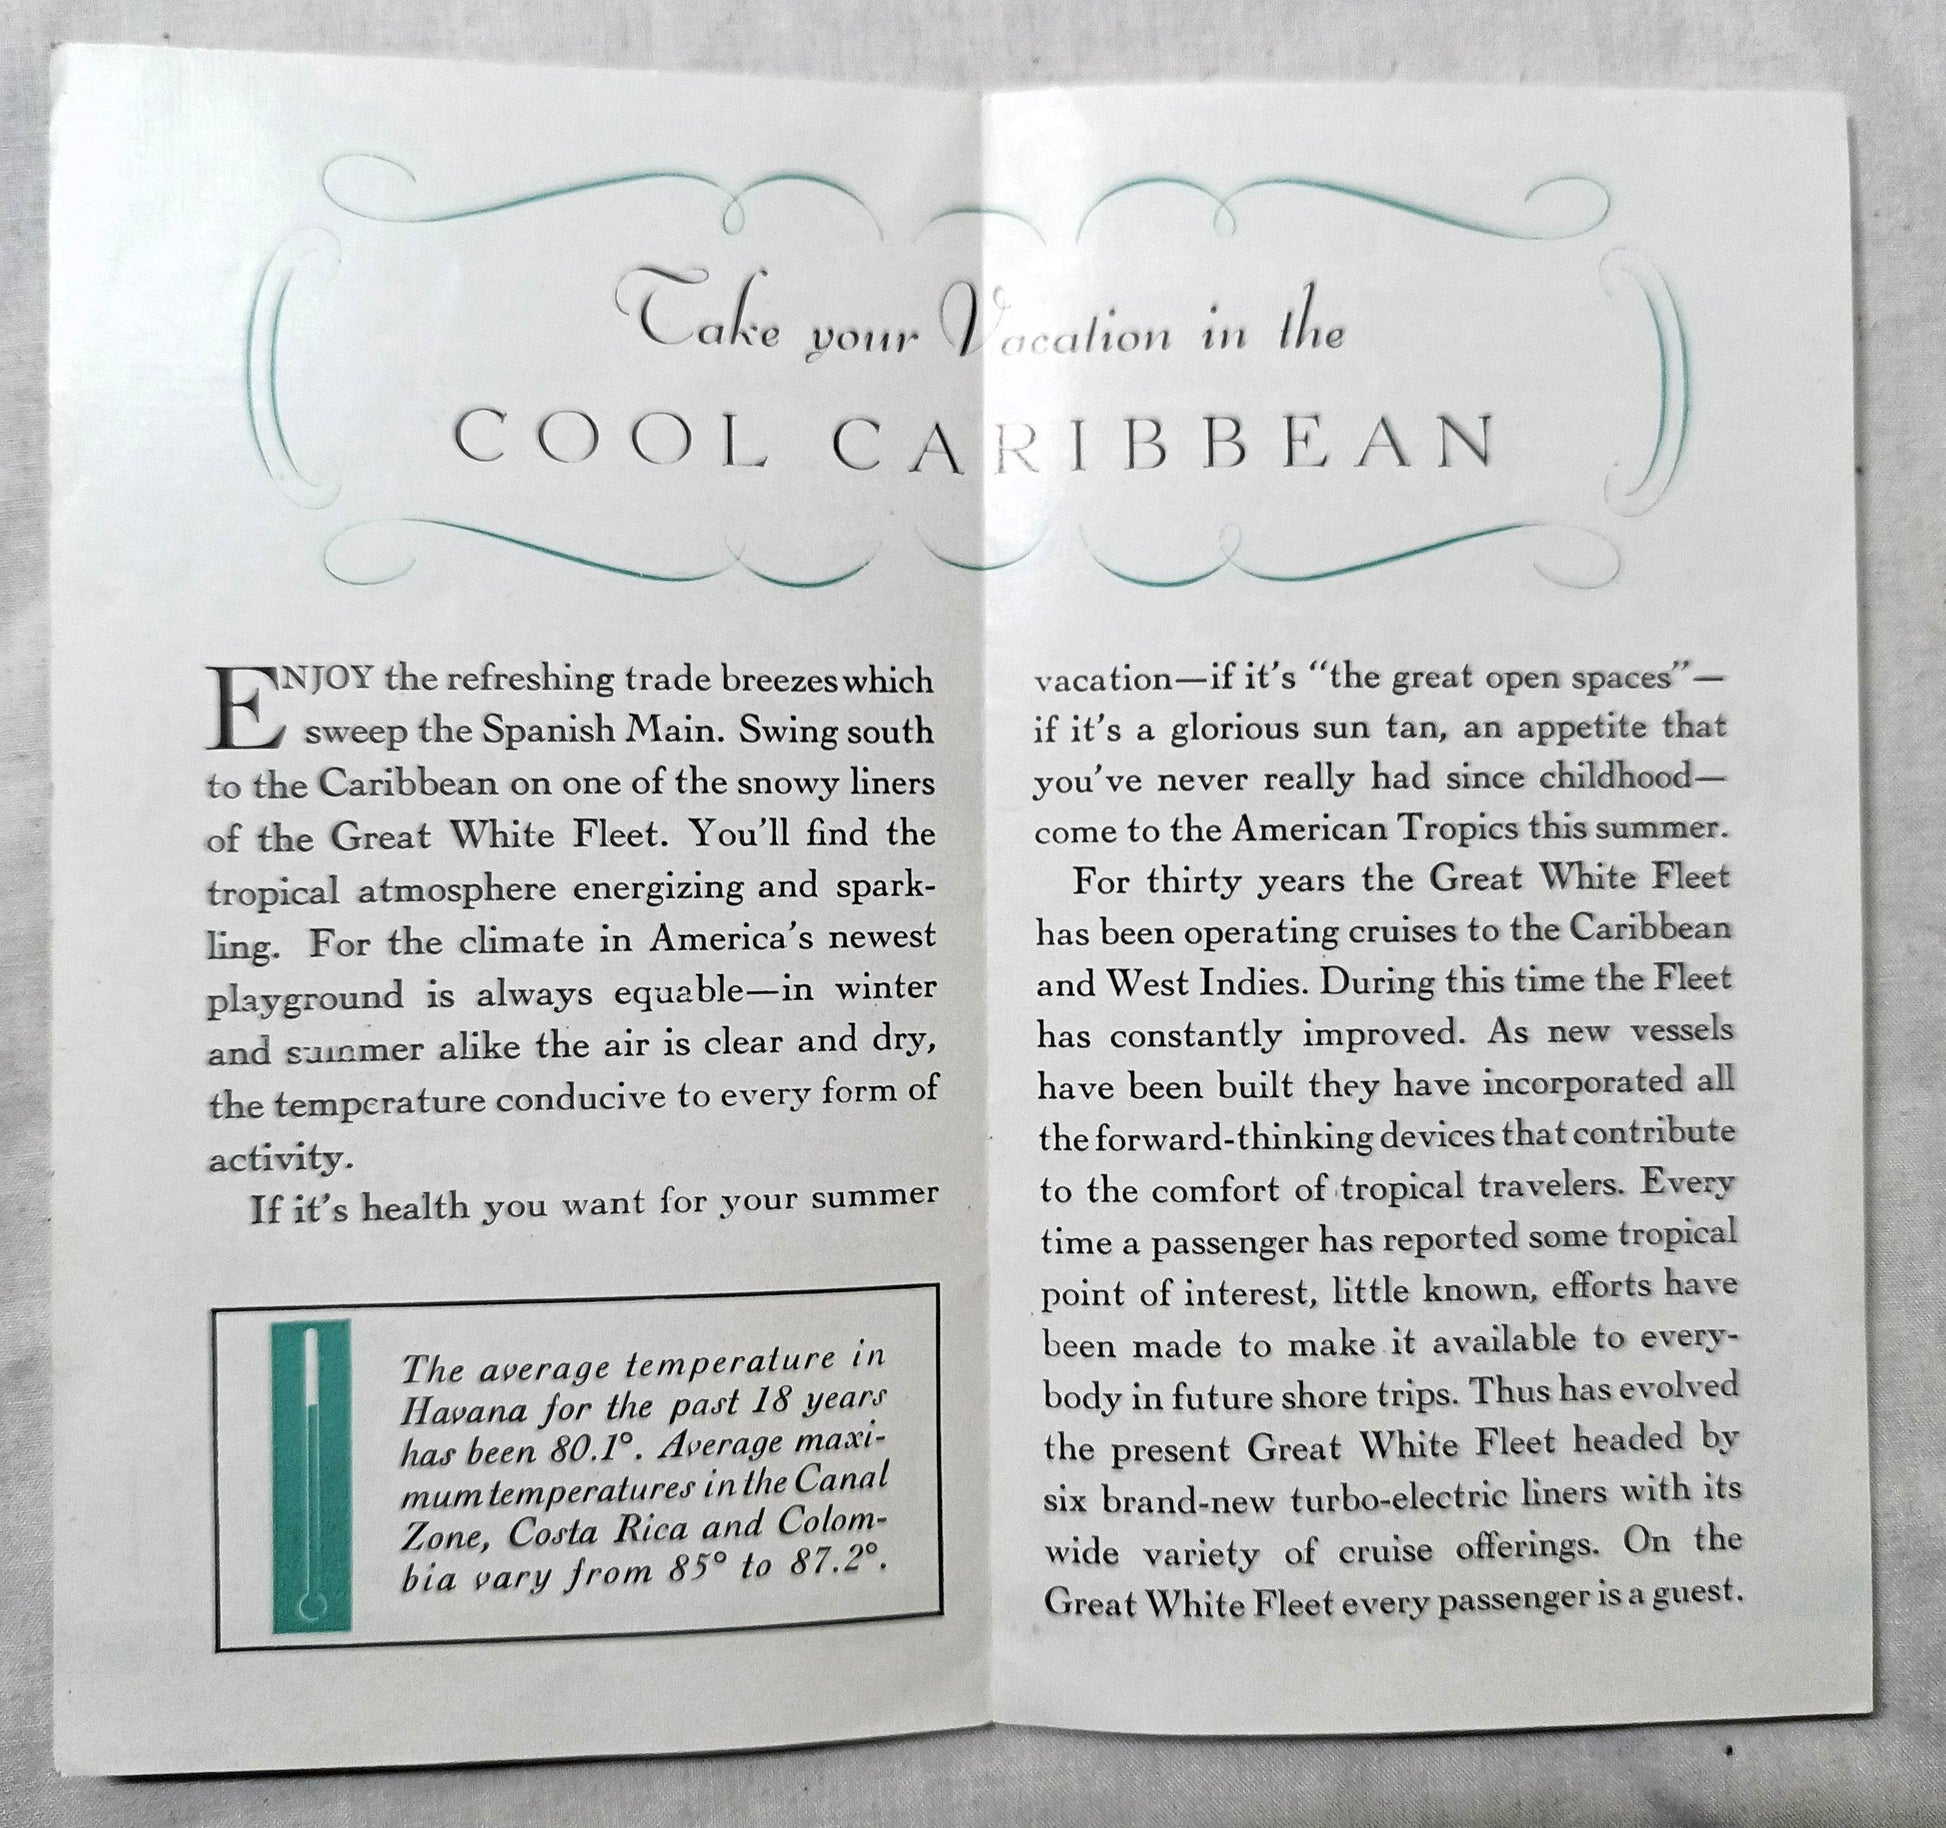 Take your Vacation in the
COOL CARIBBEAN
ENJOY the refreshing trade breezes which
sweep the Spanish Main. Swing south
to the Caribbean on one of the snowy liners
of the Great White Fleet. You'll find the
tropical atmosphere energizing and spark-
ling. For the climate in America's newest
playground is always equable—in winter
and summer alike the air is clear and dry,
the temperature conducive to every form of
activity.
If it's health you want for your summer
The average temperature in
Havana for the past 18 years
has been 80.1°. Average maxi-
mum temperatures in the Canal
Zone, Costa Rica and Colom-
bia vary from 85° to 87.2°.
vacation—if it's "the great open spaces"—
if it's a glorious sun tan, an appetite that
you've never really had since childhood—
come to the American Tropics this summer.
For thirty years the Great White Fleet
has been operating cruises to the Caribbean
and West Indies. During this time the Fleet
has constantly improved. As new vessels
have been built they have incorporated all
the forward-thinking devices that contribute
to the comfort of tropical travelers. Every
time a passenger has reported some tropical
point of interest, little known, efforts have
been made to make it available to every-
body in future shore trips. Thus has evolved
the present Great White Fleet headed by
six brand-new turbo-electric liners with its
wide variety of cruise offerings. On the
Great White Fleet every passenger is a guest.